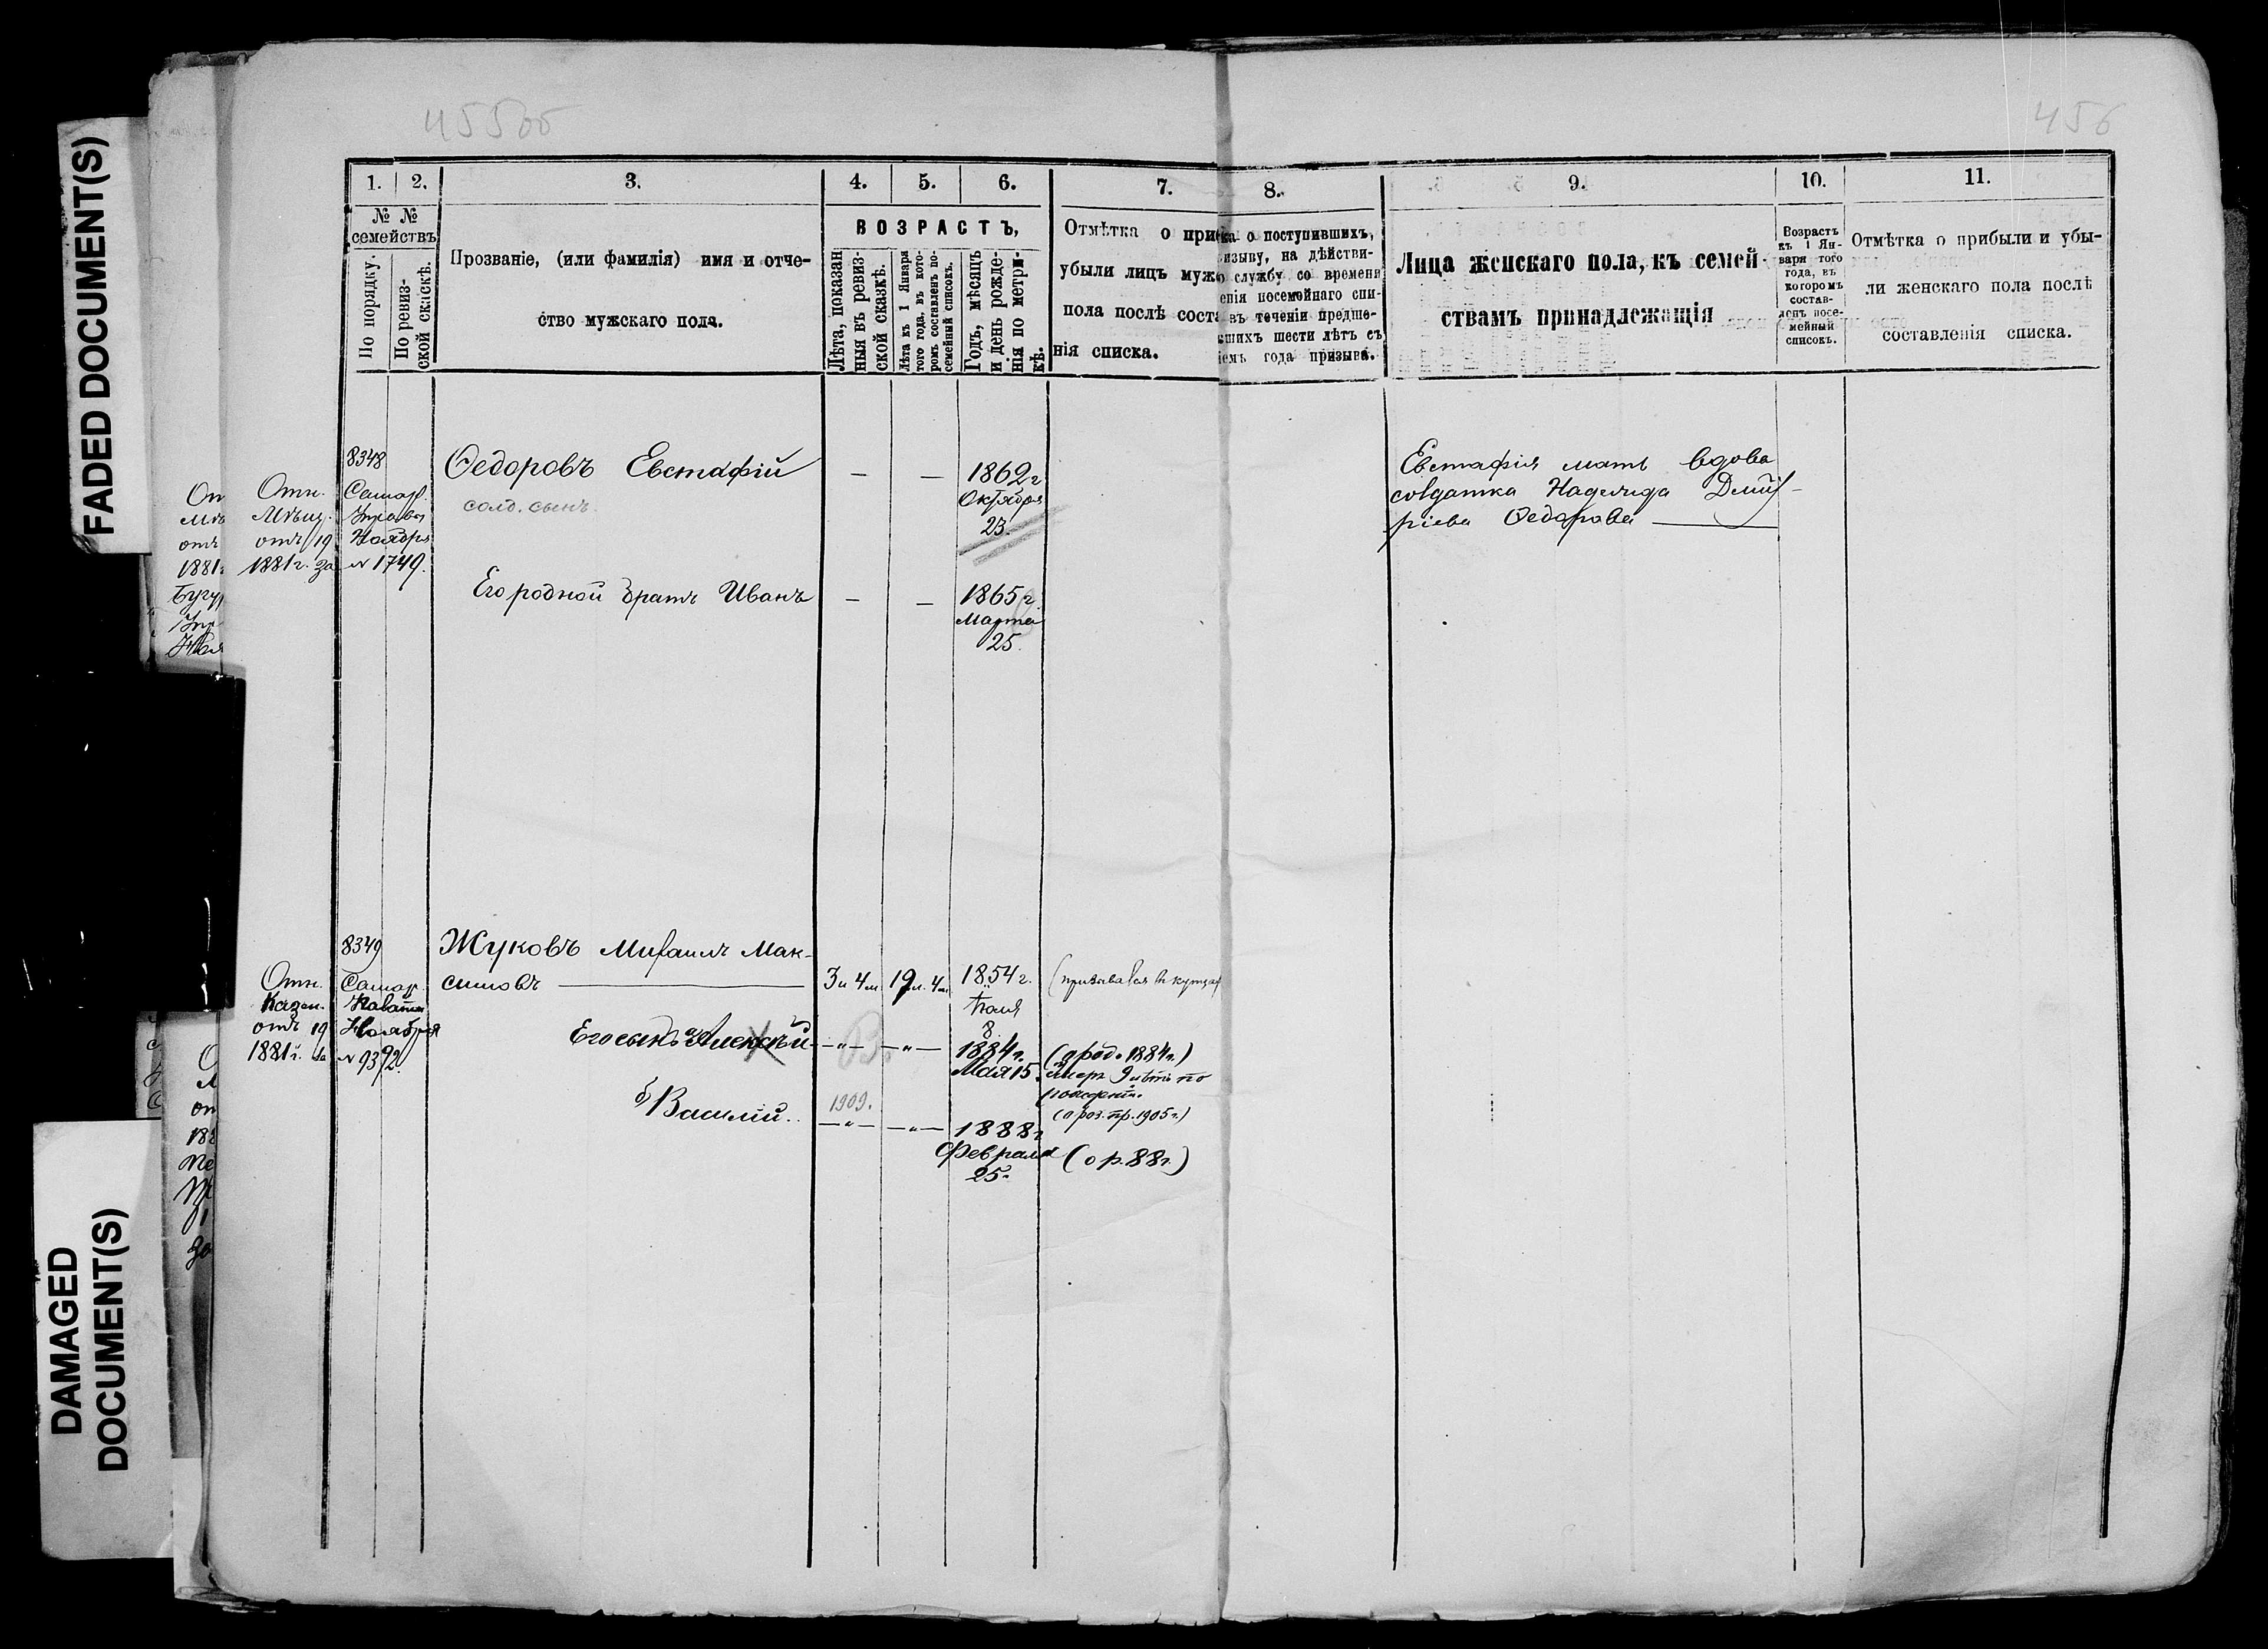 FADED DOCUMENT(S)
DAMAGED
DOCUMENT(S)
455об
456
1. 2. 3. 4. 5. 6. 7. 8. 9. 10. 11.
№ №
семействъ
По порядку.
По ревиз-
ской скаскѣ.
Прозваніе, (или фамилія) имя и отче-
ство мужскаго пола.
ВОЗРАСТЪ,
Лѣта, показан
ныя въ ревиз-
ской сказкѣ.
Лѣта къ 1 Января
того года, въ кото-
ромъ составленъ по-
семейный списокъ.
Годъ, мѣсяцъ
и день рожде-
нія по метри-
кѣ.
Отмѣтка о при
убыли лицъ муж
пола послѣ соста
нія списка.
ка о поступившихъ,
изыву, на дѣйстви-
службу со времени
енія посемейнаго спи-
въ теченіи предше-
вшихъ шести лѣтъ съ
іемъ года призыва.
Лица женскаго пола, къ семей-
ствамъ принадлежащія
Возрастъ
къ 1 Ян-
варя того
года, въ
которомъ
состав-
ленъ посе-
мейный
списокъ.
Отмѣтка о прибыли и убы-
ли женскаго пола послѣ
составленія списка.
8348
Отн. Самар.
Мѣщ. Управы
отъ 19 Ноября
1881г. за № 1749.
Ѳедоровъ Евстафій — — 1862г
солд. сынъ. Октября
23.
Евстафія мать вдова
солдатка Надежда Дмит-
ріева Ѳедорова
Его родной братъ Иванъ — — 1865г.
Марта
25.
8349
Отн. Самар.
Казен. Палаты
отъ 19 Ноября
1881г. за № 9392.
Жуковъ Михаилъ Мак-
симовъ 3 и 4м 19л. 4м 1854г.
8
Его сынъ Алексѣй —"— —"— 1884г. (о род. 1884г.)
Мая 15. умеръ 9 лѣтъ по
(о роз. пр. 1905г.)
б) Василій. 1909. —"— —"— 1888г
Февраля (о р. 88г.)
25.